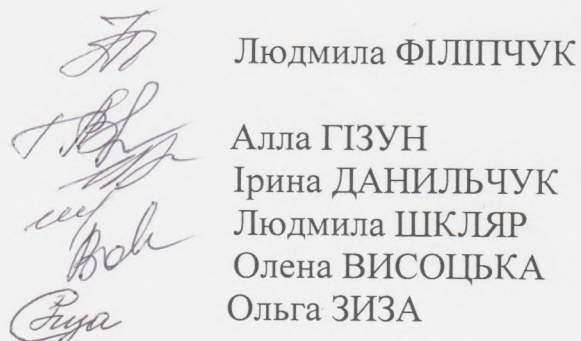 Людмила ФІЛІПЧУК
Алла ГІЗУН
Ірина ДАНИЛЬЧУК
Людмила ШКЛЯР
Олена ВИСОЦЬКА
Ольга ЗИЗА